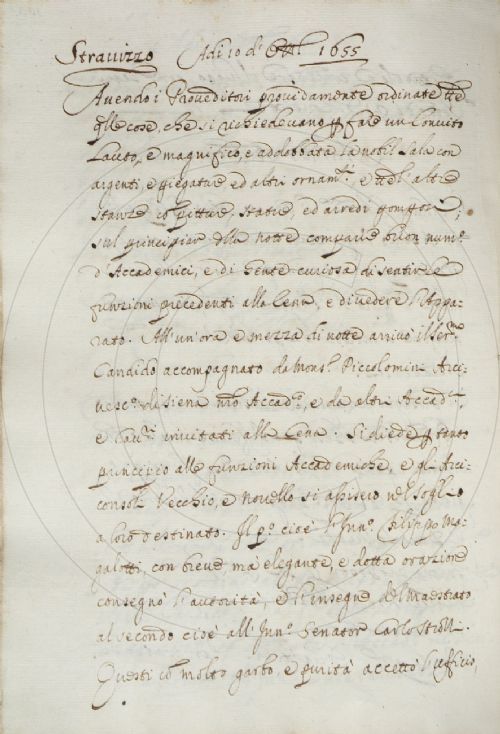 Stravizzo Adi 10 di Ott. 1655
Avendo i Proveditori providamente ordinate tte
qlle cose, che si richiedevano p fare un Convito
Lauto, e magnifico, e addobbata la nobil Sala con
argenti, e piegature ed altri ornamti, e tte l'altre
stanze co pitture, statue, ed arredi pomposi,
sul principiar dlla notte comparve buon numo
d'Accademici, e di Gente curiosa di sentir le
funzioni precedenti alla Cena, e di vedere l'Appa-
rato. All'un'ora e mezza di notte arrivò il Sermo
Candido accompagnato da Monsr Piccolomini Arci-
vesco di Siena nro Accado, e da altri Accadci,
e Cavri invitati alla Cena. Si diede p tanto
principio alle funzioni Accademiche, e gl'Arci-
consoli Vecchio, e Novello si assisero nel Soglio
a loro destinato. Il po cioè l'Inno Filippo Ma-
galotti, con breve, ma elegante, e dotta orazione
consegnò l'autorità, e l'insegne del Maestrato
al secondo cioè all'Inno Senator Carlo Strozzi.
Questi co molto garbo, e purità accettò l'uffizio,